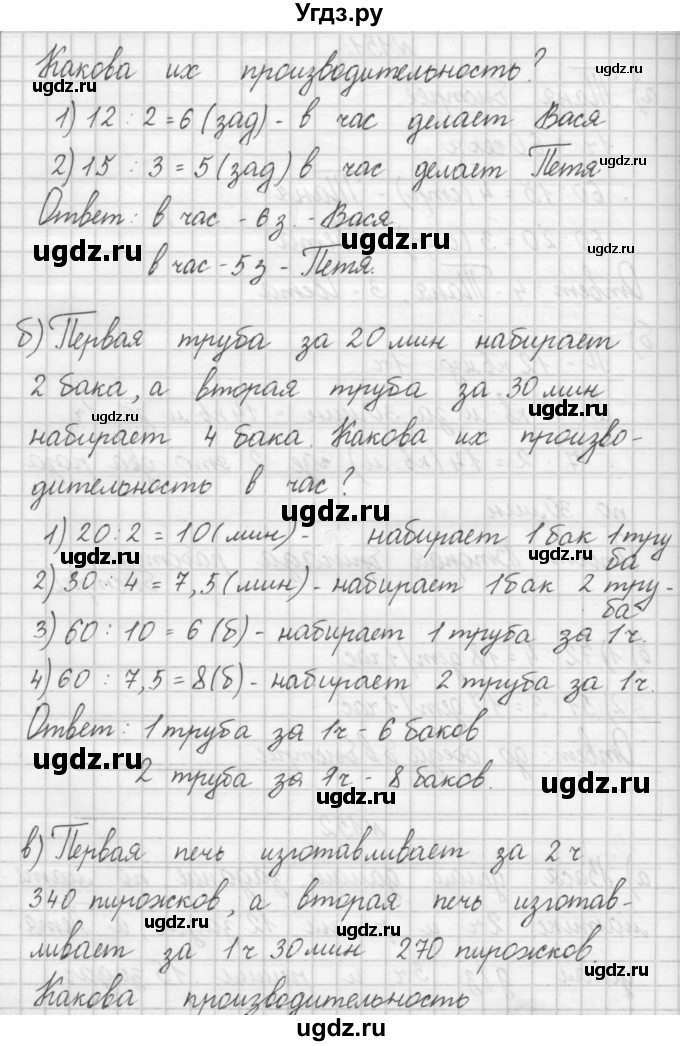 Угдз.ру
Какова их производительность?
ugdz.ru
1) 12 : 2 = 6 (зад) - в час делает Вася
ugdz.ru
2) 15 : 3 = 5 (зад) в час делает Петя
ugdz.ru
Ответ: в час - 6 з. - Вася
ugdz.ru
ugdz.ru
в час - 5 з - Петя.
б) Первая труба за 20 мин набирает
2 бака, а вторая труба за 30 мин
ugdz.ru
ugdz.ru
набирает 4 бака. Какова их произво-
дительность в час?
ugdz.ru
1) 20 : 2 = 10 (мин) - набирает 1 бак 1 тру
ба
ugdz.ru
ugdz.ru
2) 30 : 4 = 7,5 (мин) - набирает 1 бак 2 тру-
ба
3) 60 : 10 = 6 (б) - набирает 1 труба за 1 ч.
ugdz.ru
ugdz.ru
4) 60 : 7,5 = 8 (б) - набирает 2 труба за 1 ч.
Ответ: 1 труба за 1 ч - 6 баков
ugdz.ru
2 труба за 1 ч - 8 баков.
ugdz.ru
ugdz.ru
в) Первая печь изготавливает за 2 ч
340 пирожков, а вторая печь изготав-
ugdz.ru
ливает за 1 ч 30 мин 270 пирожков.
ugdz.ru
Какова производительность
ugdz.ru
ugdz.ru